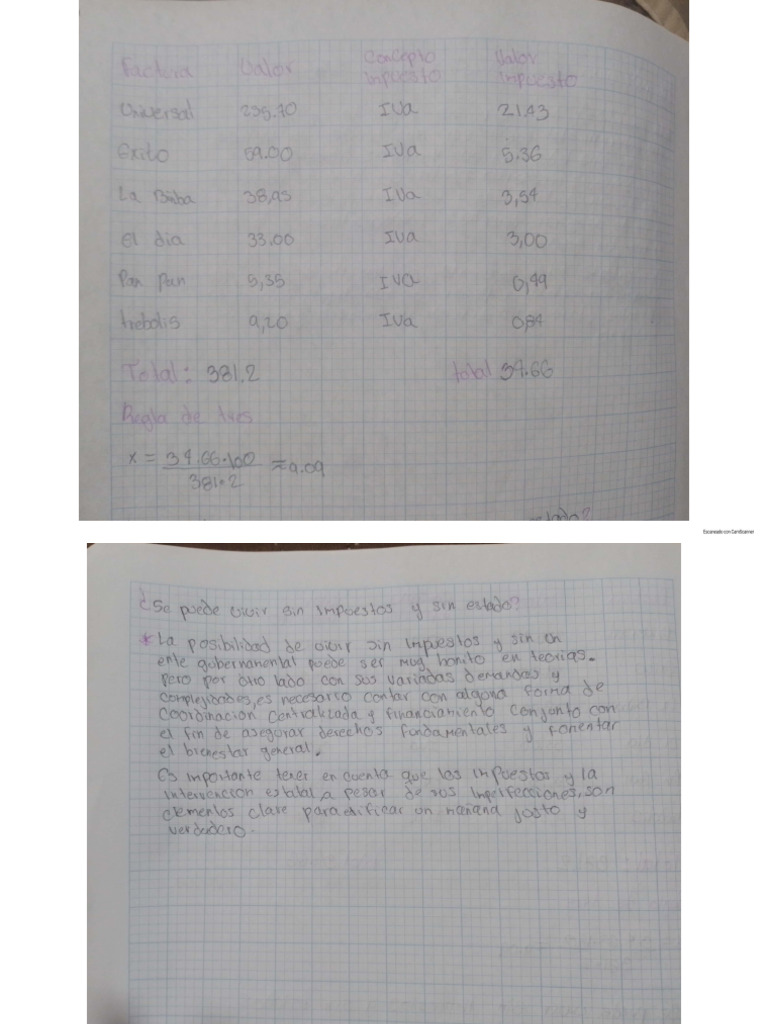 Factura Valor Concepto impuesto Valor impuesto
Universal 235.70 IVa 21.43
Exito 59.00 IVa 5.36
La Baba 38,95 IVa 3,54
El dia 33.00 IVa 3,00
Pan Pan 5,35 IVa 0,49
trebolis 9,20 IVa 0,84
Total: 381.2 total 34.66
Regla de tres
x = 34.66·100 ≈ 9.09
381.2
Escaneado con CamScanner
¿Se puede vivir sin impuestos y sin estado?
* La posibilidad de vivir sin impuestos y sin un
ente gubernamental puede ser muy bonito en teorias.
Pero por otro lado con sus variadas demandas y
complejidades, es necesario contar con alguna forma de
coordinacion centralizada y financiamiento conjunto con
el fin de asegurar derechos fundamentales y fomentar
el bienestar general.
Es importante tener en cuenta que los impuestos y la
intervencion estatal, a pesar de sus imperfecciones, son
elementos clave para edificar un mañana justo y
verdadero.